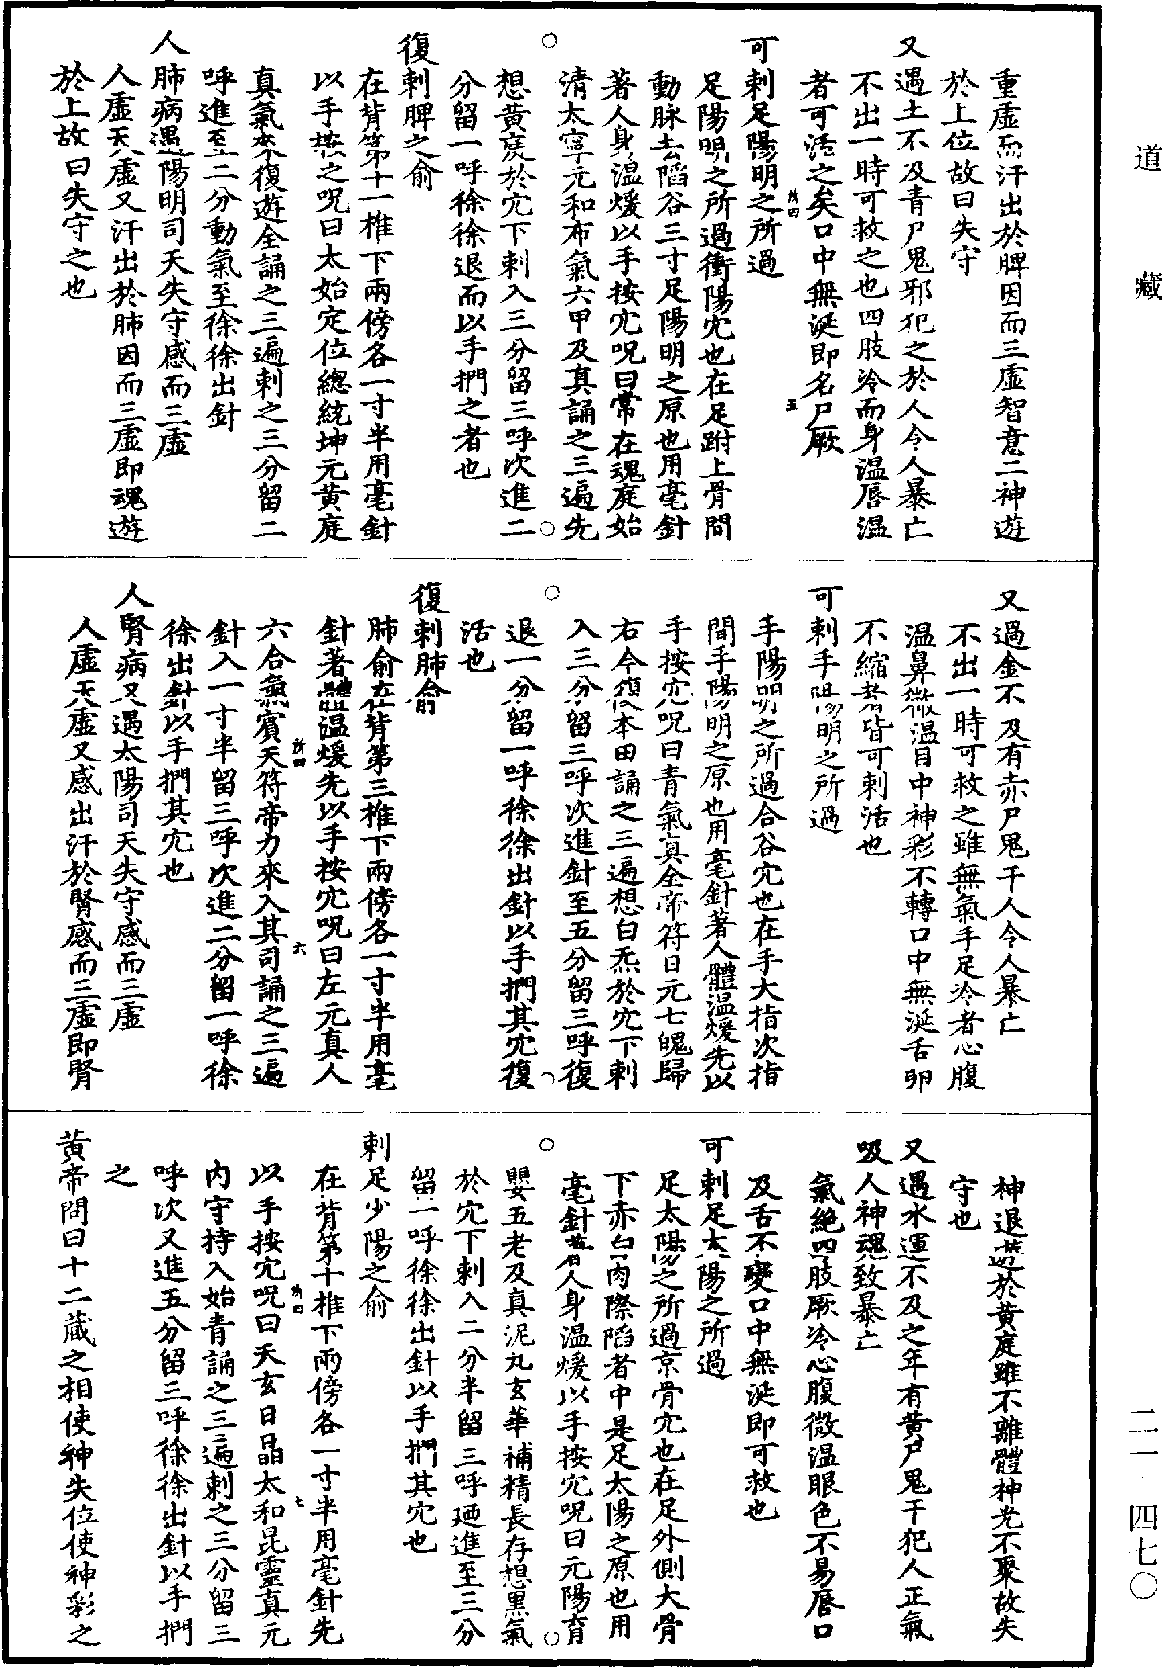 道藏
二一·四七〇
重虛而汗出於脾因而三虛智意二神遊
於上位故曰失守
又遇土不及青尸鬼邪犯之於人令人暴亡
不出一時可救之也四肢冷而身温唇温
者可活之矣口中無涎即名尸厥
可刺足陽明之所過
足陽明之所過衝陽穴也在足跗上骨間
動脉去陷谷三寸足陽明之原也用毫針
著人身温煖以手按穴呪曰常在魂庭始
清太寧元和布氣六甲及真誦之三遍先
想黃庭於穴下刺入三分留三呼次進二
分留一呼徐徐退而以手捫之者也
復刺脾之俞
在背第十一椎下兩傍各一寸半用毫針
以手按之呪曰太始定位總統坤元黃庭
真氣來復遊全誦之三遍刺之三分留二
呼進至二分動氣至徐徐出針
人肺病遇陽明司天失守感而三虛
人虛天虛又汗出於肺因而三虛即魂遊
於上故曰失守之也
又過金不及有赤尸鬼干人令人暴亡
不出一時可救之雖無氣手足冷者心腹
温鼻微温目中神彩不轉口中無涎舌卵
不縮者皆可刺活也
可刺手陽明之所過
手陽明之所過合谷穴也在手大指次指
間手陽明之原也用毫針著人體温煖先以
手按穴呪曰青氣真全帝符日元七魄歸
右今復本田誦之三遍想白炁於穴下刺
入三分留三呼次進針至五分留三呼復
退一分留一呼徐徐出針以手捫其穴復
活也
復刺肺俞
肺俞在背第三椎下兩傍各一寸半用毫
針著體温煖先以手按穴呪曰左元真人
六合氣賓天符帝力來入其司誦之三遍
針入一寸半留三呼次進二分留一呼徐
徐出針以手捫其穴也
人腎病又遇太陽司天失守感而三虛
人虛天虛又感出汗於腎感而三虛即腎
神退遊於黃庭雖不離體神光不聚故失
守也
又遇水運不及之年有黃尸鬼干犯人正氣
吸人神魂致暴亡
氣絶四肢厥冷心腹微温眼色不易唇口
及舌不變口中無涎即可救也
可刺足太陽之所過
足太陽之所過京骨穴也在足外側大骨
下赤白肉際陷者中是足太陽之原也用
毫針著人身温煖以手按穴呪曰元陽育
嬰五老及真泥丸玄華補精長存想黑氣
於穴下刺入二分半留三呼廼進至三分
留一呼徐徐出針以手捫其穴也
刺足少陽之俞
在背第十椎下兩傍各一寸半用毫針先
以手按穴呪曰天玄日晶太和昆靈真元
內守持入始青誦之三遍刺之三分留三
呼次又進五分留三呼徐徐出針以手捫
之
黃帝問曰十二藏之相使神失位使神彩之